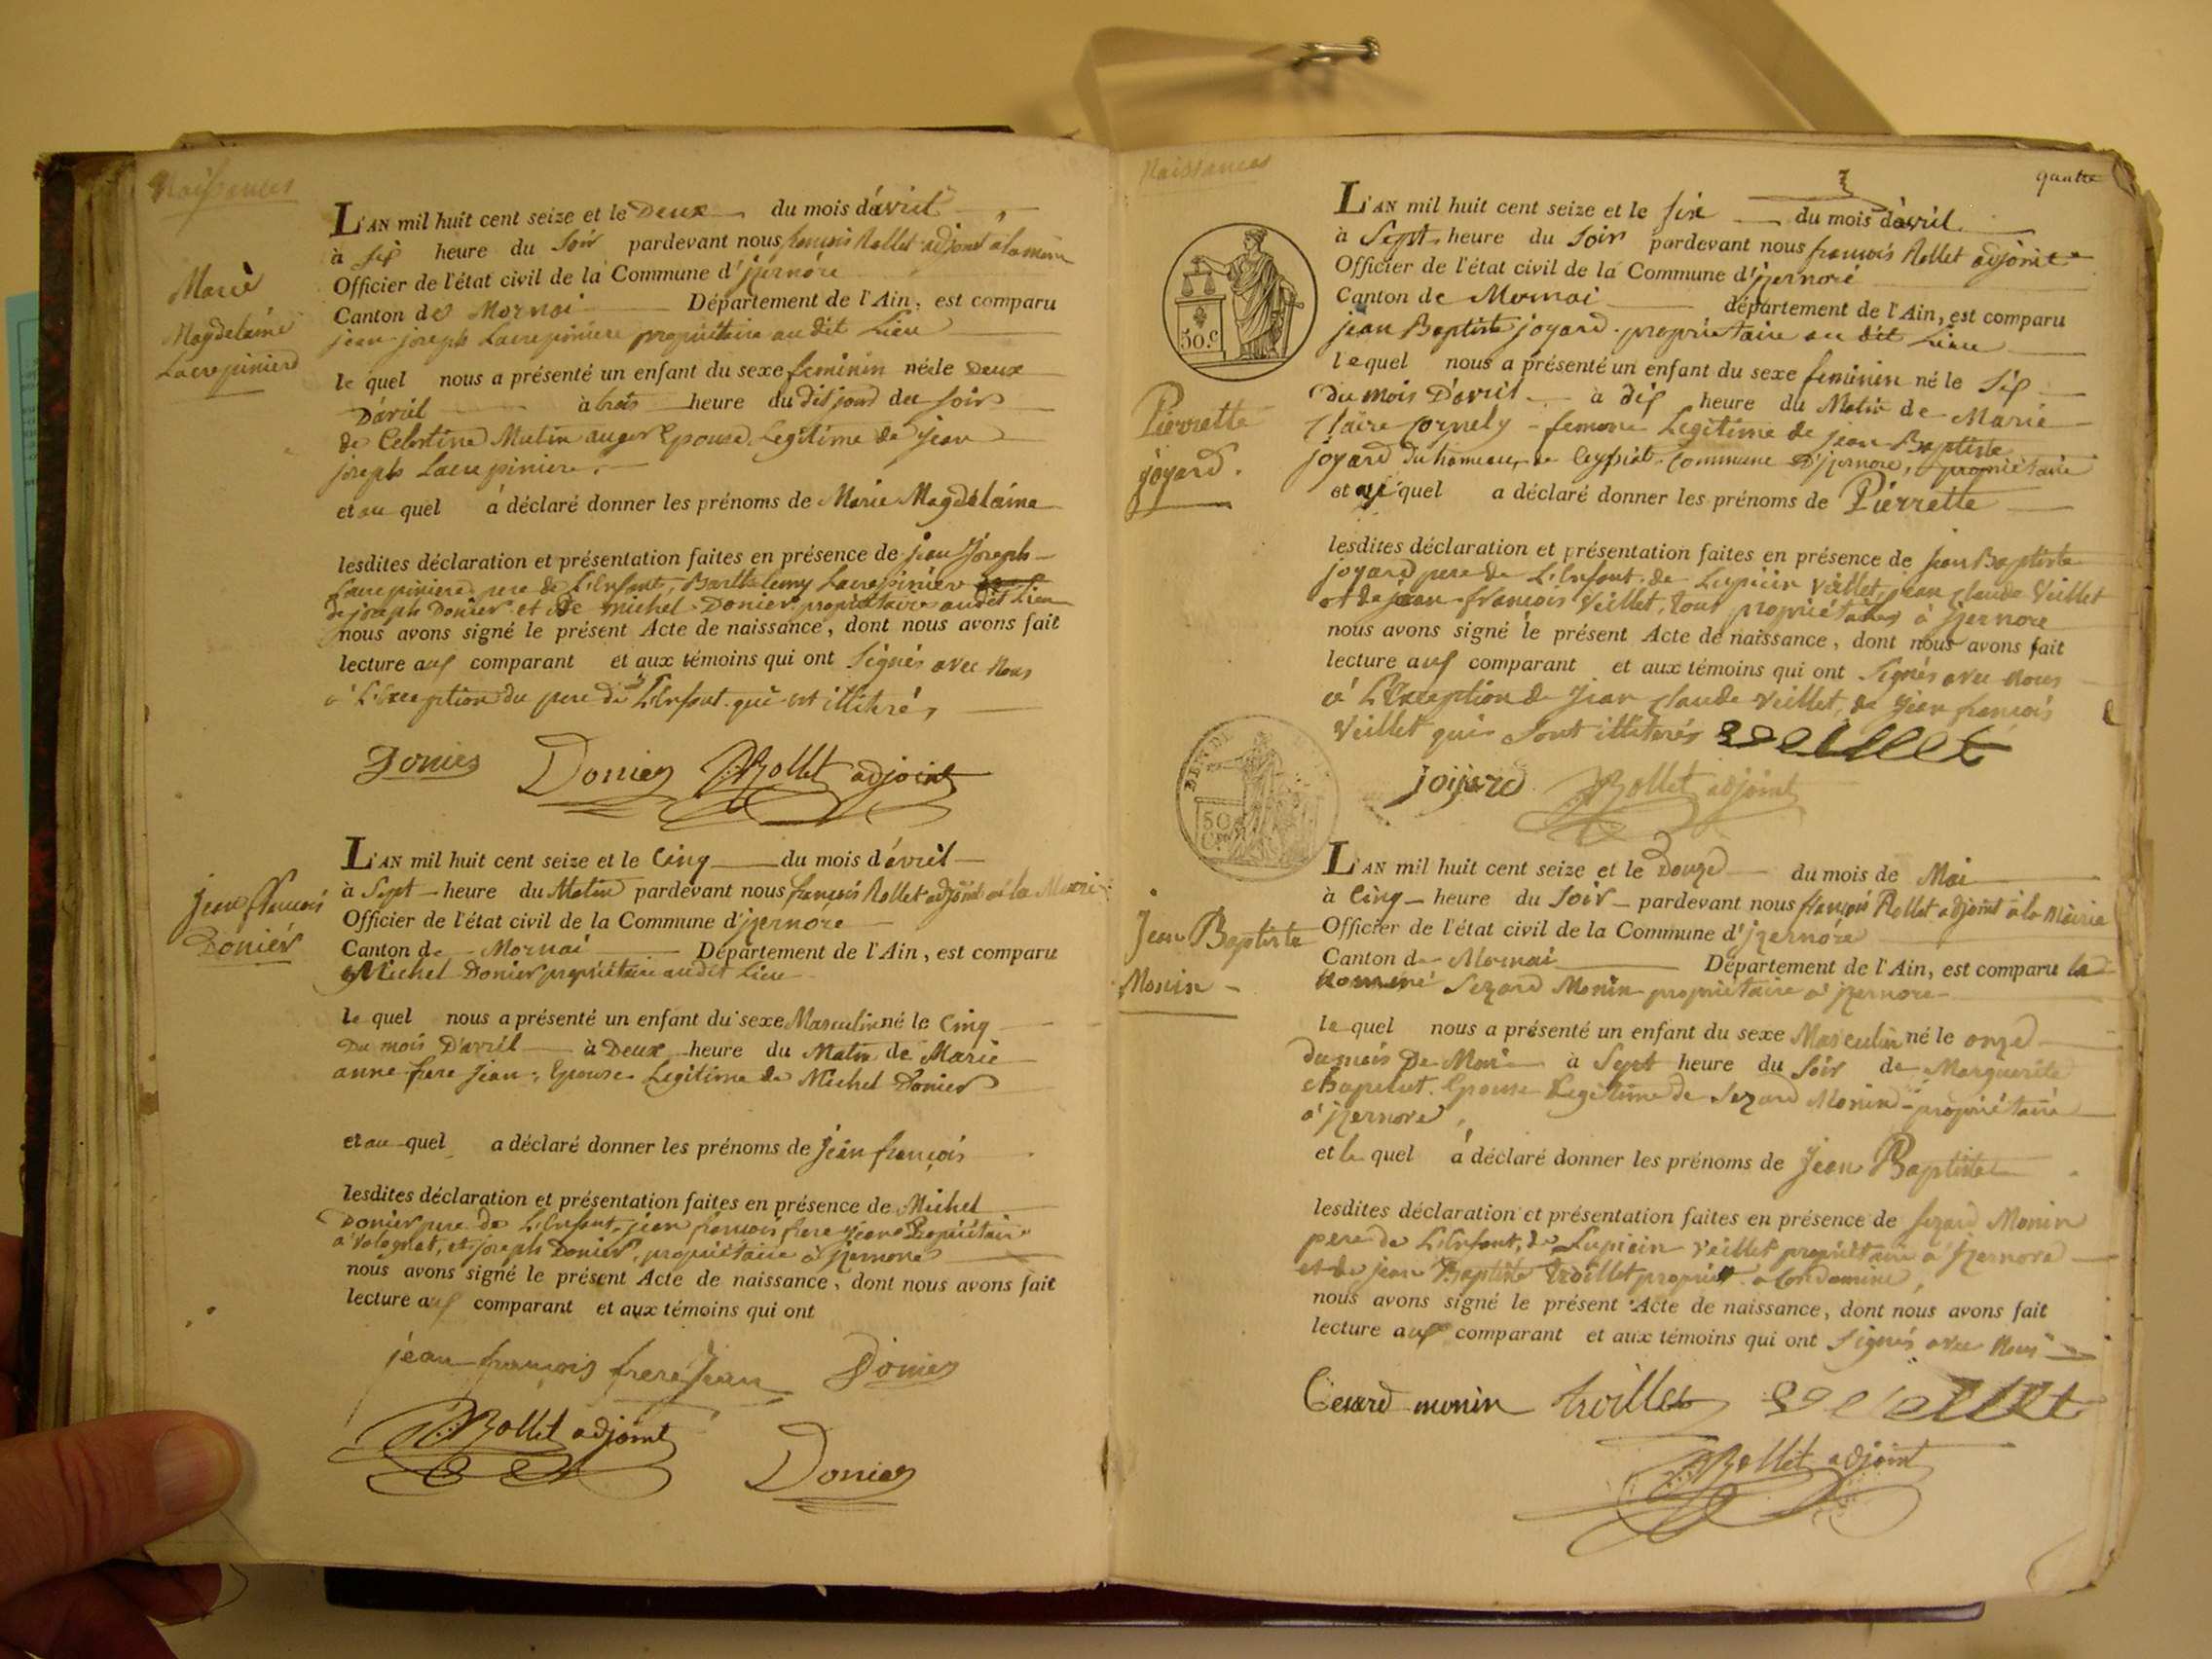 Naissances
Marie
Magdelaine
Lacrepiniere
L'AN mil huit cent seize et le Deux du mois d'avril
à six heure du Soir pardevant nous françois Rollet adjoint à la mairie
Officier de l'état civil de la Commune d'jzernore
Canton de Mornai Département de l'Ain, est comparu
jean joseph Lacrepiniere propriétaire au dit Lieu
le quel nous a présenté un enfant du sexe feminin né le Deux
D'avril à trois heure du dit jour du soir
de Celestine Mutin auger Epouse Legitime de Jean
joseph Lacrepiniere
et au quel a déclaré donner les prénoms de Marie Magdelaine
lesdites déclaration et présentation faites en présence de jean Joseph
Lacrepiniere pere de L'Enfant, Barthelemy Lacrepinier
de joseph Donier et de michel Donier propriétaire audit Lieu
nous avons signé le présent Acte de naissance, dont nous avons fait
lecture aux comparant et aux témoins qui ont Signés avec Nous
à L'Exception du pere de L'Enfant qui est illitéré,
Donier Donier Rollet adjoint
jean françois
Donier
L'AN mil huit cent seize et le Cinq du mois d'avril
à Sept heure du Matin pardevant nous françois Rollet adjoint à la Mairie
Officier de l'état civil de la Commune d'jzernore
Canton de Mornai Département de l'Ain, est comparu
Michel Donier propriétaire audit Lieu
le quel nous a présenté un enfant du sexe Masculin né le Cinq
Du mois D'avril à Deux heure du Matin de Marie
anne frere jean, Epouse Legitime de Michel Donier
et au quel a déclaré donner les prénoms de jean françois
lesdites déclaration et présentation faites en présence de Michel
Donier pere de L'Enfant, jean françois frere jean Propriétaire
a Volognat, et joseph Donier, propriétaire a jzernore
nous avons signé le présent Acte de naissance, dont nous avons fait
lecture aux comparant et aux témoins qui ont
jean françois frere Jean Donier
Rollet adjoint
Donier
Naissances
quatre
50.c
Pierrette
joyard.
L'AN mil huit cent seize et le six du mois d'avril
à Sept heure du Soir pardevant nous françois Rollet adjoint
Officier de l'état civil de la Commune d'jzernore
Canton de Mornai département de l'Ain, est comparu
jean Baptiste joyard propriétaire au dit Lieu
lequel nous a présenté un enfant du sexe feminin né le six
Du mois D'avril à dix heure du Matin de Marie
Claire Cornely femme Legitime de jean Baptiste
joyard du hameau de Ceyssiat Commune D'jzernore, propriétaire
et quel a déclaré donner les prénoms de Pierrette
lesdites déclaration et présentation faites en présence de jean Baptiste
joyard pere de L'Enfant, de Lupicin Veillet, jean Claude Veillet
et de jean françois Veillet, tous propriétaires à jzernore
nous avons signé le présent Acte de naissance, dont nous avons fait
lecture aux comparant et aux témoins qui ont Signés avec Nous
à L'Exception de Jean Claude Veillet, de Jean françois
Veillet qui sont illiterés veillet
joijard Rollet adjoint
50
Jean Baptiste
Monin
L'AN mil huit cent seize et le Douze du mois de Mai
à Cinq heure du Soir pardevant nous françois Rollet adjoint à la Mairie
Officier de l'état civil de la Commune d'jzernore
Canton de Mornai Département de l'Ain, est comparu le
Nommé Sezard Monin propriétaire a jzernore
le quel nous a présenté un enfant du sexe Masculin né le onze
du mois De Mai à Sept heure du Soir de Marguerite
Chapelut Epouse Legitime de Sezard Monin propriétaire
a jzernore,
et le quel a déclaré donner les prénoms de Jean Baptiste
lesdites déclaration et présentation faites en présence de Sezard Monin
pere de L'Enfant, de Lupicin Veillet propriétaire a jzernore
et de jean Baptiste troillet propriet. a Condamine,
nous avons signé le présent Acte de naissance, dont nous avons fait
lecture aux comparant et aux témoins qui ont Signés avec Nous
Cesard monin troillet veillet
Rollet adjoint